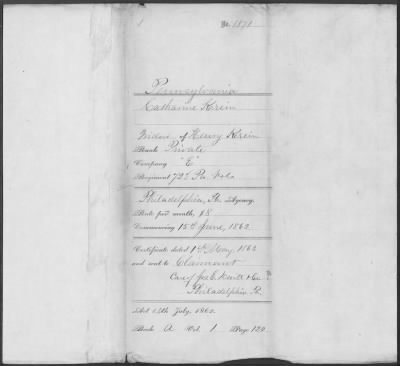 No. 1871
Pennsylvania
Catharine Krein
Widow of Henry Krein
Rank Private
Company "E"
Regiment 72d Pa. Vols
Philadelphia, Pa. Agency.
Rate per month, $8
Commencing 15th June, 1862
Certificate dated 1st May, 1863
and sent to Claimant
Care of Jos. E. & Co
Philadelphia Pa.
Act 14th July, 1862.
Book A Vol. 1 Page 120